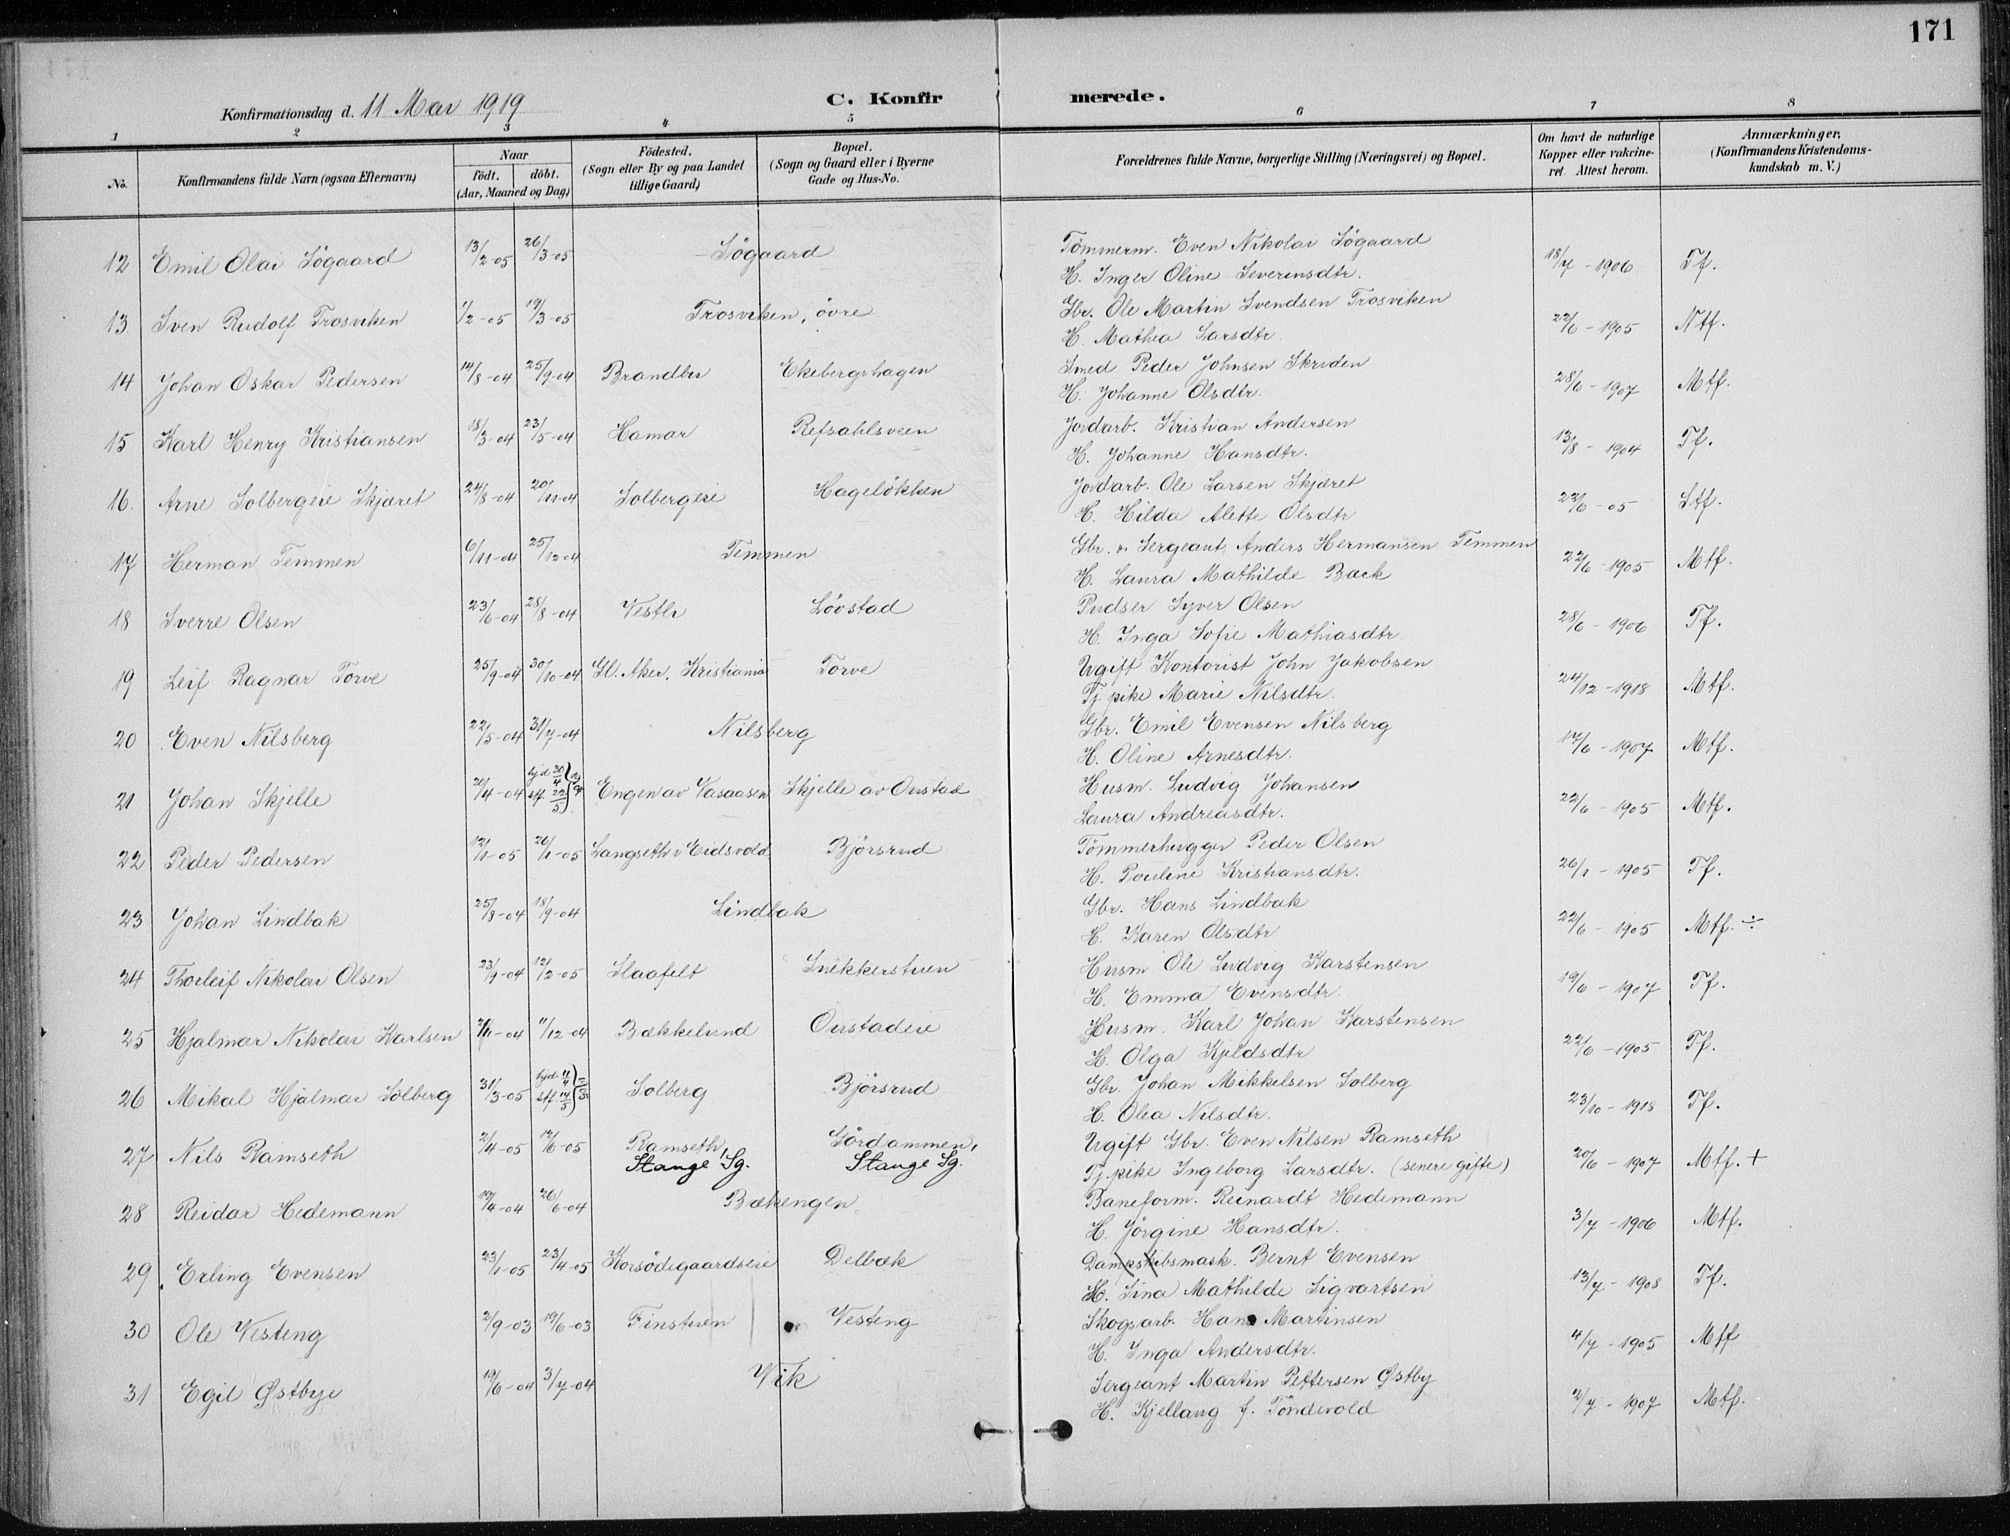 171
Konfirmationsdag d. 11 Mai 1919 C. Konfir merede.
1 2 3 4 5 6 7 8
No.
Konfirmandens fulde Navn (ogsaa Efternavn)
Naar
födt. döbt.
(Aar, Maaned og Dag)
Födested.
(Sogn eller By og paa Landet
tillige Gaard)
Bopæl.
(Sogn og Gaard eller i Byerne
Gade og Hus-No.
Forældrenes fulde Navne, borgerlige Stilling (Næringsvei) og Bopæl.
Om havt de naturlige
Kopper eller vakcine-
ret. Attest herom.
Anmærkninger,
(Konfirmandens Kristendoms-
kundskab m. V.)
12 Emil Olai Søgaard 13/2-05 26/3-05 Søgaard Tømmerm. Even Nikolai Søgaard 18/7-1906 Tf.
H. Inger Oline Severinsdtr.
13 Sven Rudolf Trosviken 1/2-05 19/3-05 Trosviken, övre Gbr. Ole Martin Svendsen Trosviken 22/6-1905 Ntf.
H. Mathea Larsdtr.
14 Johan Oskar Pedersen 14/8-04 25/9-04 Brandbu Ekebergshagen Smed Peder Johnsen Skriden 28/6-1907 Mtf.
H. Johanne Olsdtr.
15 Karl Henry Kristiansen 18/3-04 23/5-04 Hamar Refsahlsveien Jordarb. Kristian Andersen 13/8-1904 Tf.
H. Johanne Hansdtr.
16. Arne Solbergeie Skjæret 24/8-04 20/11-04 Solbergeie Hageløkken Jordarb. Ole Larsen Skjæret 22/6-05 Stf.
H. Hilda Alette Olsdtr
17 Herman Temmen 6/11-04 25/12-04 Temmen Gbr. & Sergeant Anders Hermansen Temmen 22/6-1905 Mtf.
H. Laura Mathilde Back
18 Sverre Olsen 23/6-04 28/8-04 Vestli Løvstad Pudser Syver Olsen 28/6-1906 Tf.
H. Inga Sofie Mathiasdtr.
19 Leif Ragnar Torve 25/9-04 30/10-04 Gl. Aker, Kristiania Torve Ugift Kontorist John Jakobsen 24/12-1918 Mtf.
Tj.pike Marie Nilsdtr.
20 Even Nilsberg 22/5-04 31/7-04 Nilsberg Gbr. Emil Evensen Nilsberg 17/6-1907 Mtf.
H. Oline Arnesdtr.
21 Johan Skjelle 20/4-04 hjd 30/4 stf. 22/5 04 Engen av Vasaasen Skjelle av Oustad Husm. Ludvig Johansen 22/6-1905 Mtf.
Laura Andreasdtr.
22 Peder Pedersen 12/1-05 26/1-05 Langseth v Eidsvold Bjørsrud Tømmerhugger Peder Olsen 26/1-1905 Tf.
H. Pouline Kristiansdtr.
23 Johan Lindbak 25/8-04 18/9-04 Lindbak Gbr. Hans Lindbak 22/6-1905 Mtf. ÷
H. Karen Olsdtr
24 Thorleif Nikolai Olsen 23/9-04 12/2-05 Slaafelt Snikkerstuen Husm Ole Ludvig Karstensen 19/6-1907 Tf.
H. Emma Evensdtr.
25 Hjalmar Nikolai Karlsen 2/11-04 11/12-04 Bækkelund Oustadeie Husm. Karl Johan Karstensen 22/6-1905 Tf.
H. Olga Kjeldsdtr
26 Mikal Hjalmar Solberg 31/3-05 hjd. 11/4 stf. 14/5 Solberg Bjørsrud Gbr. Johan Mikkelsen Solberg 23/10-1918 Tf.
H. Olea Nilsdtr.
27 Nils Ramseth 2/4-05 12/6-05 Ramseth, Gördammen, Ugift Gbr. Even Nilsen Ramseth 20/6-1907 Mtf. +
Stange Sg. Stange Sg. Tj.pike Ingeborg Larsdtr. (senere gifte)
28 Reidar Hedemann 19/4-04 26/6-04 Bækengen Baneform. Reinardt Hedemann 3/7-1906 Mtf.
H. Jørgine Hansdtr.
29 Erling Evensen 23/1-05 23/4-05 Korsødegaardseie Delbæk Dampskibsmask. Bernt Evensen 13/7-1908 Tf.
H. Sina Mathilde Sigvartsen
30 Ole Vesteng 2/9-03 19/6-03 Finstuen Vesteng Skogsarb. Hans Martinsen 4/7-1905 Mtf
H. Inga Andersdtr.
31 Egil Østbye 19/6-04 3/7-04 Vik Sergeant Martin Pettersen Østby 2/7-1907 Mtf.
H. Kjellaug f. Tøndevold